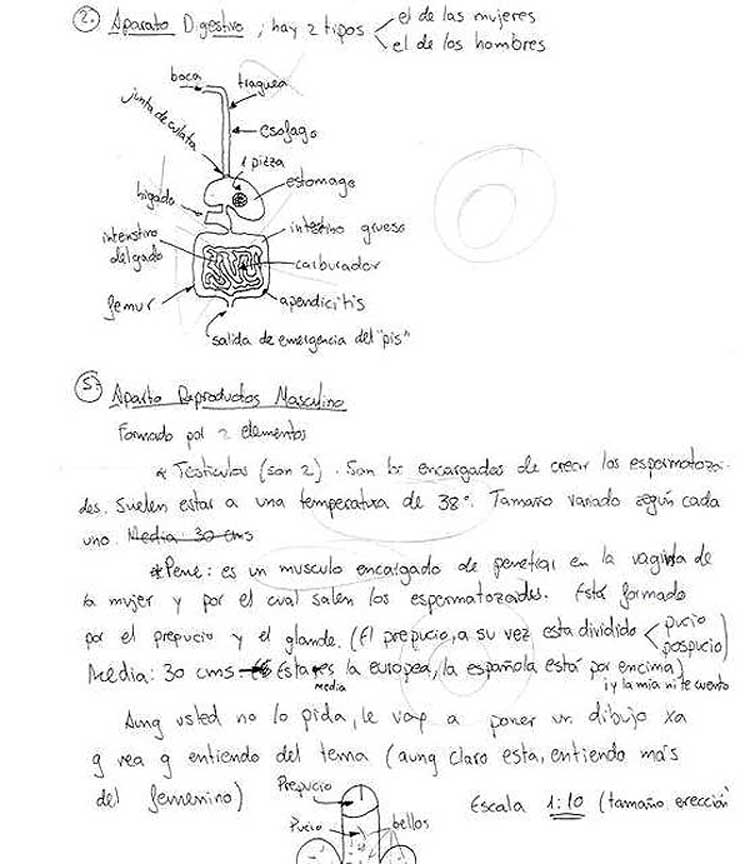 2. Aparato Digestivo ; hay 2 tipos
el de las mujeres
el de los hombres
boca
traquea
junta de culata
esofago
1 pizza
estomago
higado
intestino grueso
intenstino
delgado
carburador
femur
apendicitis
salida de emergencia del "pis"
5= Aparto Reproductos Masculino
Formado por 2 elementos
* Testiculos (son 2). Son los encargados de crear los espermatozoi-
des. Suelen estar a una temperatura de 38°. Tamaño variado según cada
uno. Media: 30 cms
* Pene: es un musculo encargado de penetrar en la vagina de
la mujer y por el cual salen los espermatozoides. Está formado
por el prepucio y el glande. (El prepucio, a su vez esta dividido
pucio
pospucio)
Media: 30 cms. (Esta es la europea, la española está por encima)
media
¡y la mia ni te cuento
Aunq usted no lo pida, le voy a poner un dibujo xa
q vea q entiendo del tema (aunq claro esta, entiendo más
del femenino)
Prepucio
Escala 1:10 (tamaño erección
Pucio
bellos